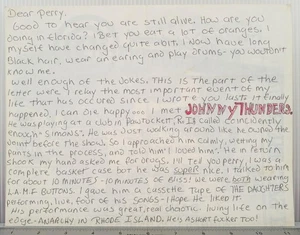 Dear Perry,
Good to hear you are still alive. How are you
doing in Florida? I Bet you eat a lot of oranges. I
myself have changed quite a bit. I now have long
Black hair, wear an earing and play drums- you wouldn't
know me.
Well enough of the Jokes. THIS is the part of the
letter were I relay the most important event of my
life that has occured since I wrote you last it finally
happened, I can die happy... I met JOHNNY THUNDERS.
He was playing at a club in Pawtucket, R.I. called
enough- "Simons". He was Just walking around like he owned the
Joint before the show. So I approached him calmly, wetting my
pants in the process, and told him I loved him". He in return
shook my hand asked me for drugs. I'll tell you Perry, I was a
complete basket case but he was super nice. I talked to him
for about 10 MINUTES - 10 MINUTES of Bliss! We were BOTH wearing
L.A.M.F. Buttons. I gave him a cassette Tape OF THE DAUGHTERS
performing, live, four of his songs - I Hope he liked it.
His performance was great, real chaotic living life on the
edge - ANARCHY IN RHODE ISLAND. He is a short fucker too!